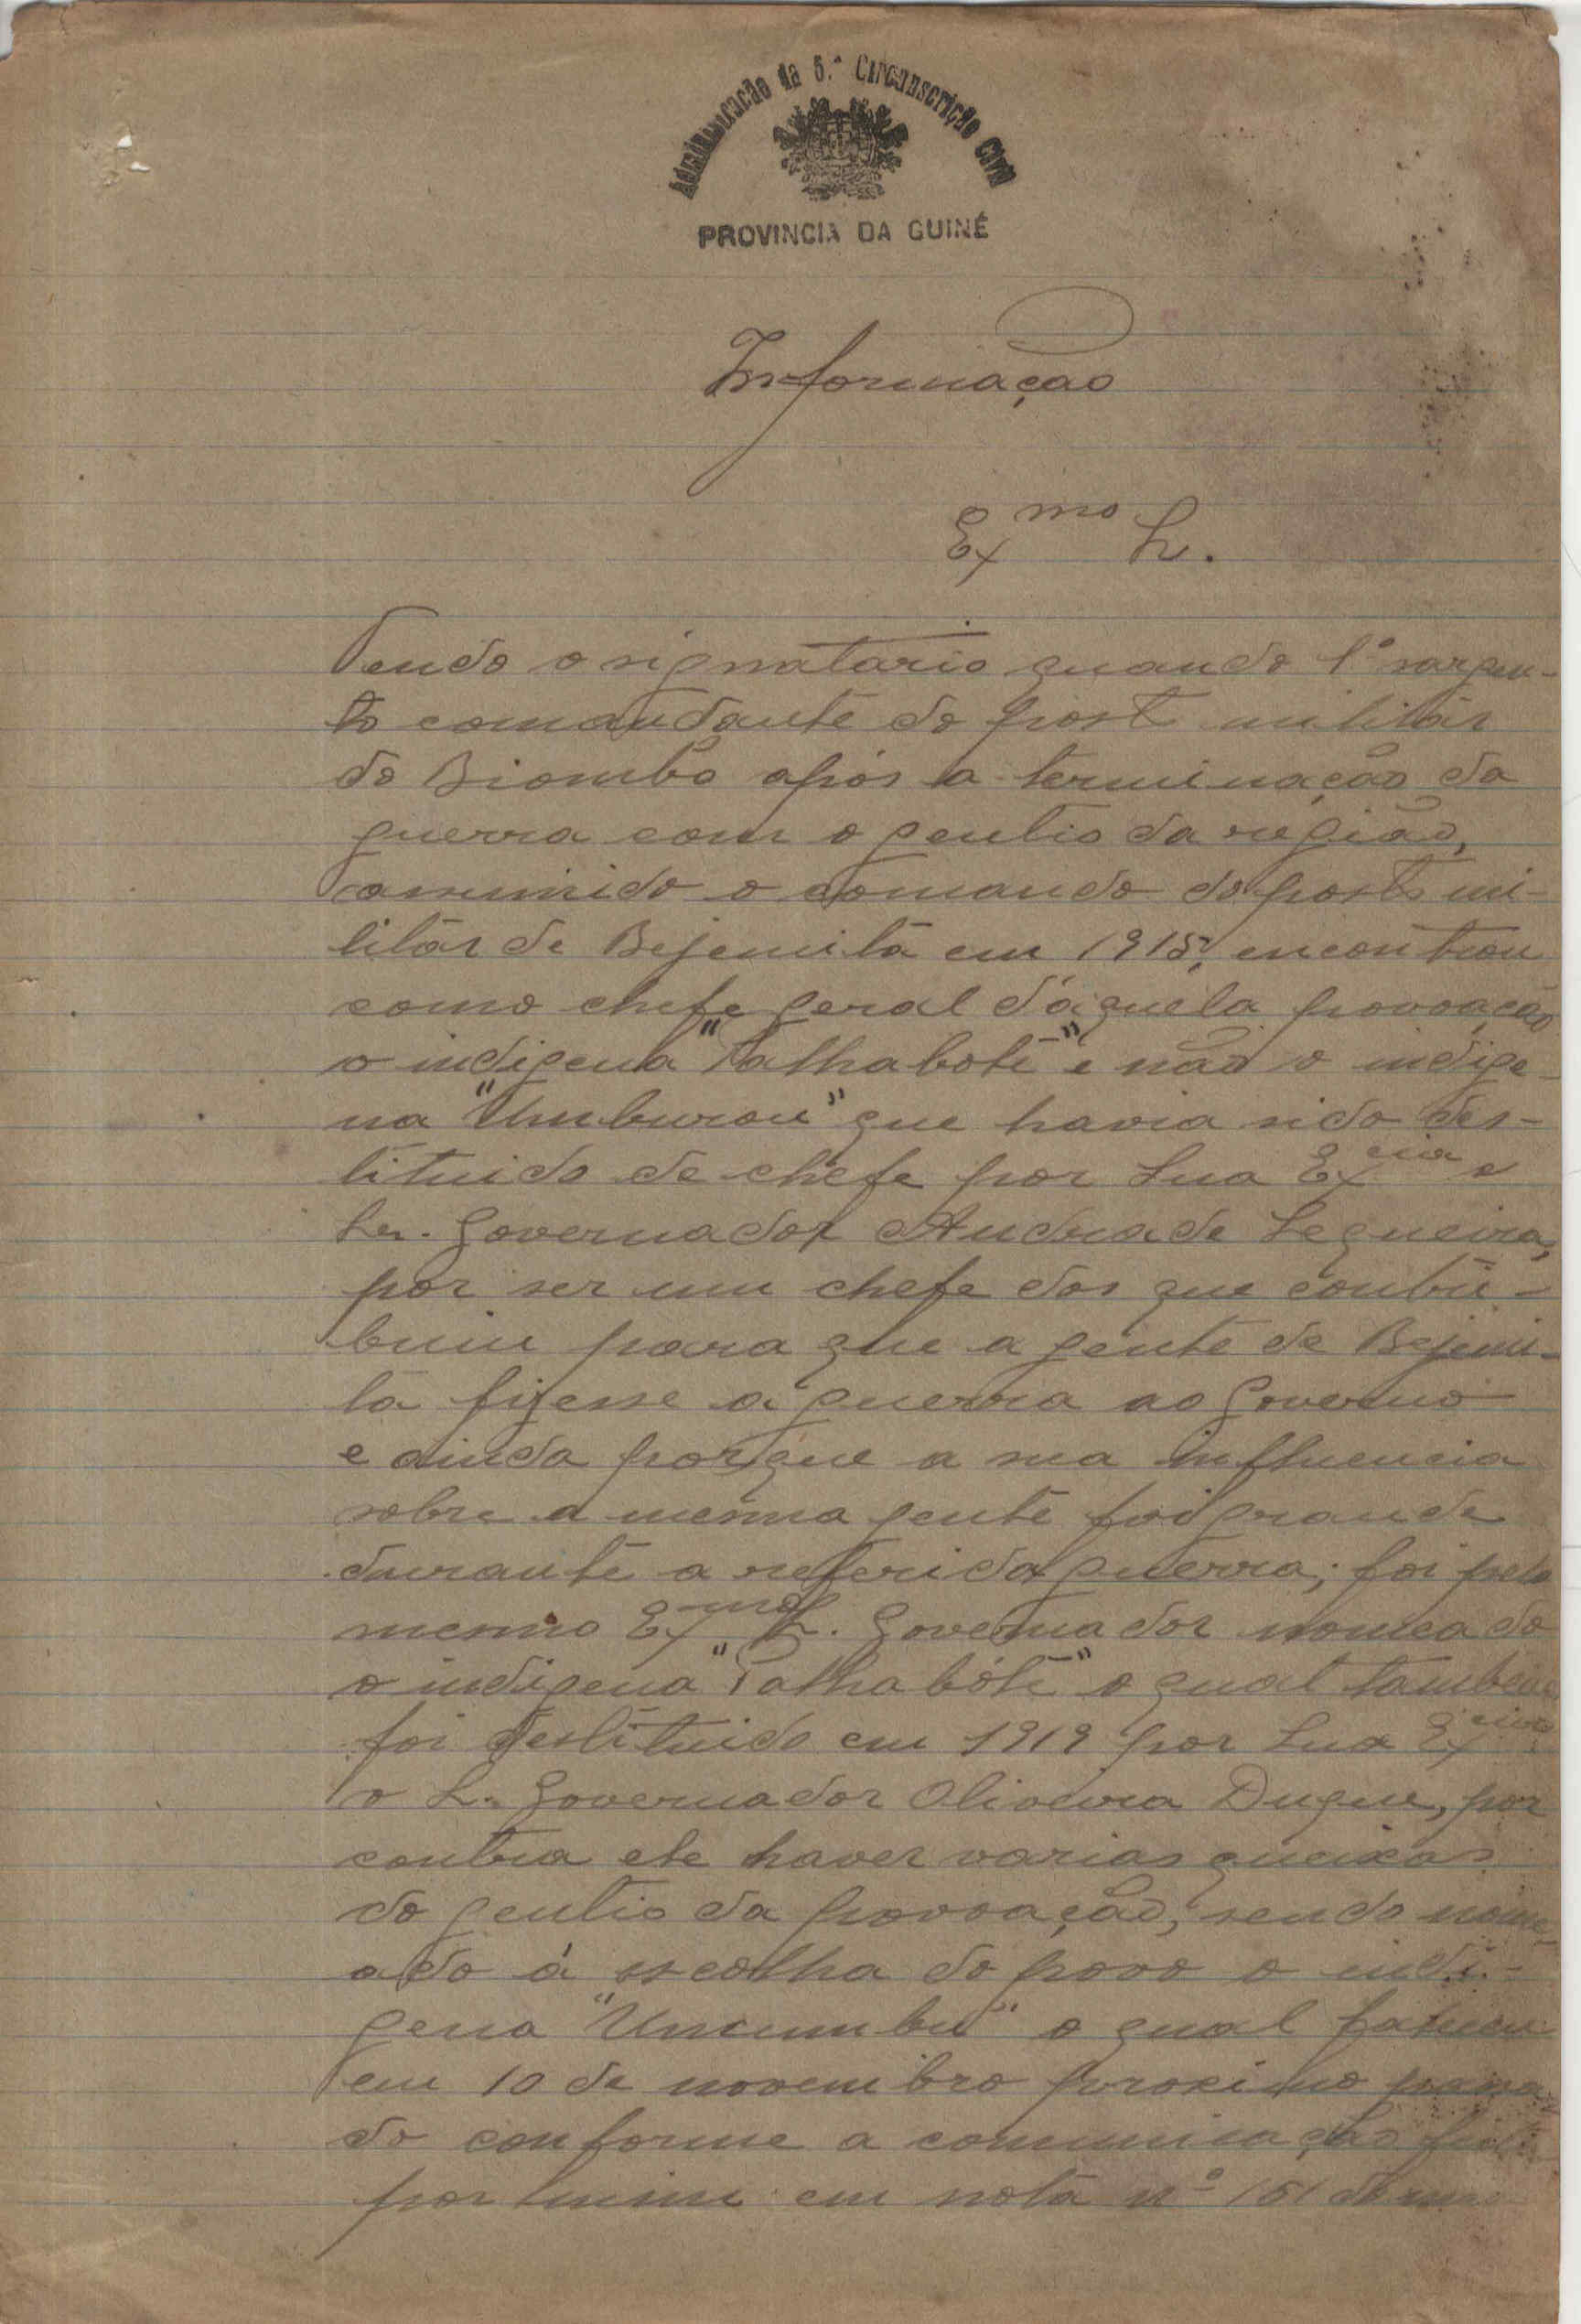 Administração da 5.ª Circunscrição Civil
PROVINCIA DA GUINÉ
Informação
Exmo Sr.
Tendo o signatario quando 1º sargen-
to comandante do posto militár
do Biombo após a terminação da
guerra com o gentio da região,
assumido o comando do posto mi-
litár de Bejemitá em 1915, encontrou
como chefe geral d'áquela povoação
o indigena "Palhabote" e não o indige-
na "Umburou" que havia sido des-
tituido de chefe por Sua Excia o
Sr. Governador Andrade Sequeira,
por ser um chefe dos que contri-
buiu para que a gente de Bejemi-
tá fizesse a guerra ao Governo
e ainda porque a sua influencia
sobre a mesma gente foi grande
durante a referida guerra; foi pelo
mesmo Exmo Sr. Governador nomeado
o indigena "Palhabóte" o qual tambem
foi destituido em 1919 por Sua Excia
o Sr. Governador Oliveira Duque, por
contra ele haver varias queixas
do gentio da povoação, sendo nome-
ado á escolha do povo o indi-
gena "Uncumbu" o qual faleceu
em 10 de novembro proximo passa-
do conforme a comunicação feita
por mim em nota nº 151